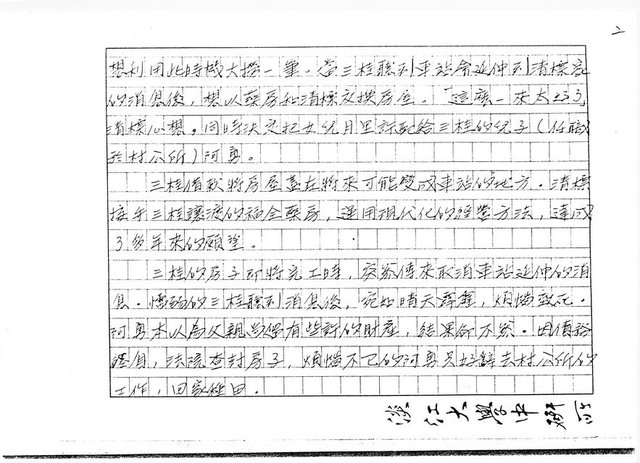 2
想利用此時機大撈一筆。當三桂聽到車站會延伸到清標家
的消息後,想以藥房和清標交換房屋。「這麼一來太好了」
清標心想。同時決定把女兒月里許配給三桂的兒子(任職
於村公所)阿勇。
三桂借款將房屋蓋在將來可能變成車站的地方。清標
接手三桂讓渡的福全藥房,運用現代化的經營方法,達成
了多年來的願望。
三桂的房子即將完工時,突然傳來取消車站延伸的消
息。懦弱的三桂聽到消息後,宛如晴天霹靂,煩惱致死。
阿勇本以為父親尚留有些許的財產,結果命不然。因債務
經負,法院查封房子,煩惱不已的阿勇只好辭去村公所的
工作,回家種田。
淡江大學中研所